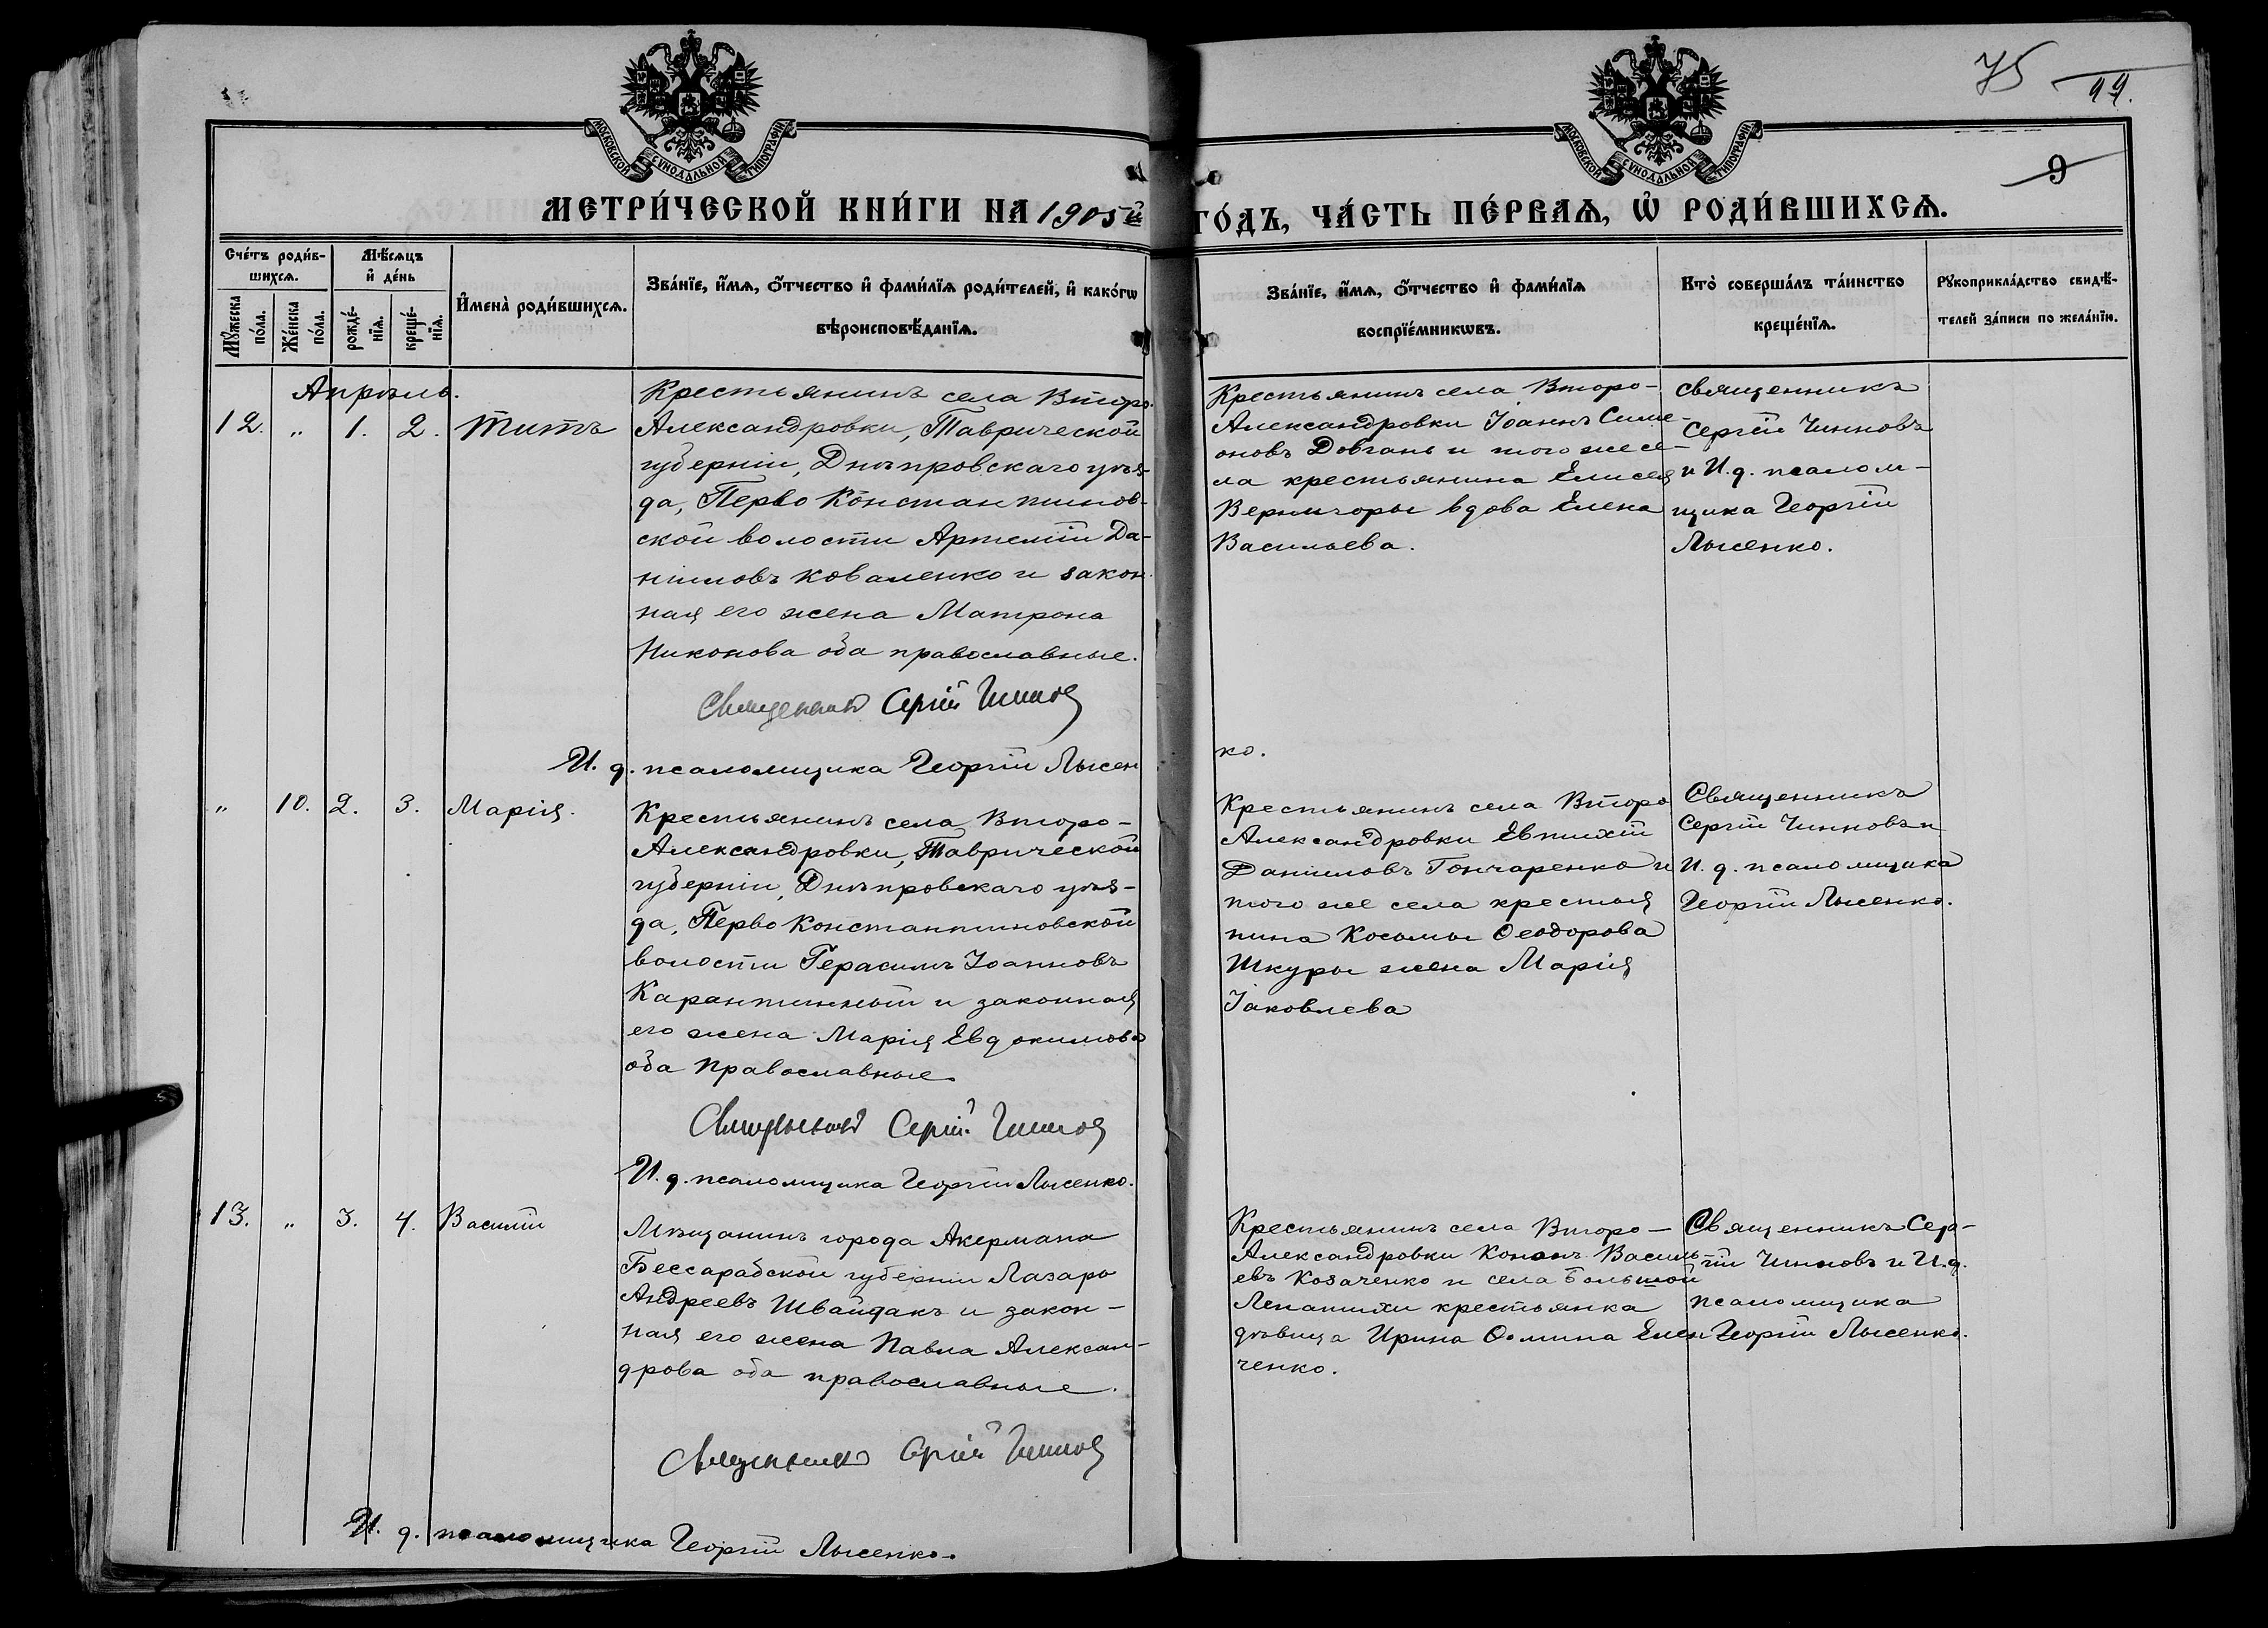 75
99.
9
МОСКОВСКОЙ СѴНОДАЛЬНОЙ ТИПОГРАФІИ
МОСКОВСКОЙ СѴНОДАЛЬНОЙ ТИПОГРАФІИ
МЕТРИ́ЧЕСКОЙ КНИ́ГИ НА 1905й ГО́ДЪ, ЧА́СТЬ ПЕ́РВАѦ, Ѡ҆ РОДИ́ВШИХСѦ.
Сче́тъ роди́в-
шихсѧ.
Мꙋ́жеска по́ла.
Же́нска по́ла.
Мѣ́сѧцъ
и҆ де́нь
рожде́-
нїѧ.
креще́-
нїѧ.
И҆мена̀ роди́вшихсѧ.
Зва́нїе, и҆́мѧ, ѻ҆́тчество и҆ фами́лїѧ роди́телей, и҆ како́гѡ
вѣроисповѣ́данїѧ.
Зва́нїе, и҆́мѧ, ѻ҆́тчество и҆ фами́лїѧ
воспрїе́мникѡвъ.
Кто̀ соверша́лъ та́инство
креще́нїѧ.
Рꙋкоприкла́дство свидѣ́-
телей за́писи по жела́нїю.
Апрѣль.
12. „ 1. 2. Титъ
Крестьянинъ села Второ-
Александровки, Таврической
губерніи, Днѣпровскаго уѣз-
да, Перво Константинов-
ской волости Артемій Да-
ніиловъ Коваленко и закон-
ная его жена Матрона
Никонова оба православные.
Священникъ Сергій Чинновъ
И. д. псаломщика Георгій Лысен
ко.
Крестьянинъ села Второ-
Александровки Іоаннъ Симе-
оновъ Довгань и того же се-
ла крестьянина Елисея
Вернигоры вдова Елена
Васильева.
Священникъ
Сергій Чинновъ
и И. д. псалом-
щика Георгій
Лысенко.
„ 10. 2. 3. Марія.
Крестьянинъ села Второ-
Александровки, Таврической
губерніи, Днѣпровскаго уѣз-
да, Перво Константиновской
волости Герасимъ Іоанновъ
Карантинный и законная
его жена Марія Евдокимова
оба православные.
Священникъ Сергій Чинновъ
И. д. псаломщика Георгій Лысенко.
Крестьянинъ села Второ
Александровки Евтихій
Даніиловъ Гончаренко и
того же села крестья
нина Космы Ѳеодорова
Шкуры жена Марія
Іаковлева
Священникъ
Сергій Чинновъ и
И. д. псаломщика
Георгій Лысенко.
13. „ 3. 4. Василій
Мѣщанинъ города Акермана
Бессарабской губерніи Лазарь
Андреевъ Швайдакъ и закон-
ная его жена Павла Алексан-
дрова оба православные.
Священникъ Сергій Чинновъ
И. д. псаломщика Георгій Лысенко.
Крестьянинъ села Второ-
Александровки Кононъ Василь
евъ Козаченко и села Большой
Лепатихи крестьянка
дѣвица Ирина Ѳомина Елен
ченко.
Священникъ Сер-
гій Чинновъ и И. д.
псаломщика
Георгій Лысенко.